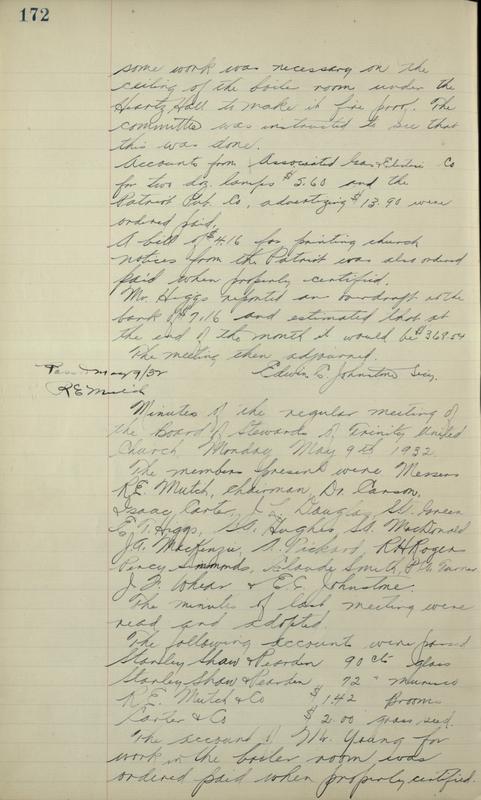 172
some work was necessary on the
ceiling of the boiler room under the
Heartz Hall to make it fire proof. The
committee was instructed to see that
this was done.
Accounts from Associated Gas & Electric Co
for two doz. lamps $5.60 and the
Patriot Pub. Co, advertizing $13.90 were
ordered paid.
A bill of $4.16 for printing church
notices from the Patriot was also ordered
paid when properly certified.
Mr. Higgs reported an overdraft at the
bank of $7.16 and estimated that at
the end of the month it would be $369.54
The meeting then adjourned.
Passed May 9/32
Edwin C. Johnstone Secy.
R E Mutch
Minutes of the regular meeting of
the Board of Stewards of Trinity United
Church Monday May 9th 1932.
The members present were Messers
R.E. Mutch, Chairman, Dr. Carson,
Isaac Carter, J. L. Douglas, Green
E. T. Higgs, Hughes, MacDonald
J.A. MacKenzie, Pickard, R H Rogers
Percy Simmonds, Smith, Turner
J. F. Whear & E.C. Johnstone.
The minutes of last meeting were
read and adopted.
The following accounts were passed
Stanley Shaw & Pearden 90 cts glass
Stanley Shaw & Pearden 72 " muresco
R.E. Mutch & Co $1.42 Brooms
Carter & Co $2.00 grass seed.
The account of Mr. Young for
work in the boiler room was
ordered paid when properly certified.